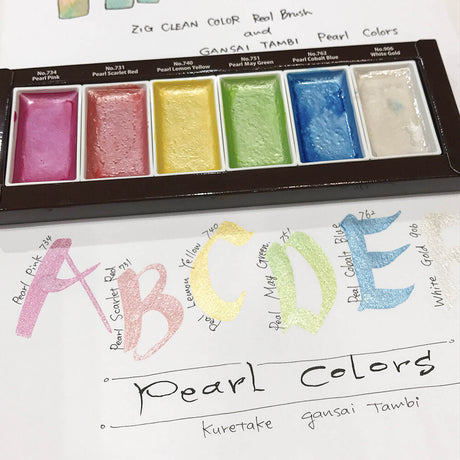 ZIG CLEAN COLOR Real Brush
and
GANSAI TAMBI Pearl Colors
No.734
Pearl Pink
No.731
Pearl Scarlet Red
No.740
Pearl Lemon Yellow
No.751
Pearl May Green
No.762
Pearl Cobalt Blue
No.906
White Gold
Pearl Pink 734
A
Pearl Scarlet Red 731
B
Peal Lemon Yellow 740
C
Peal May Green 751
D
Peal Cobalt Blue 762
E
White Gold 906
Pearl Colors
Kuretake gansai Tambi